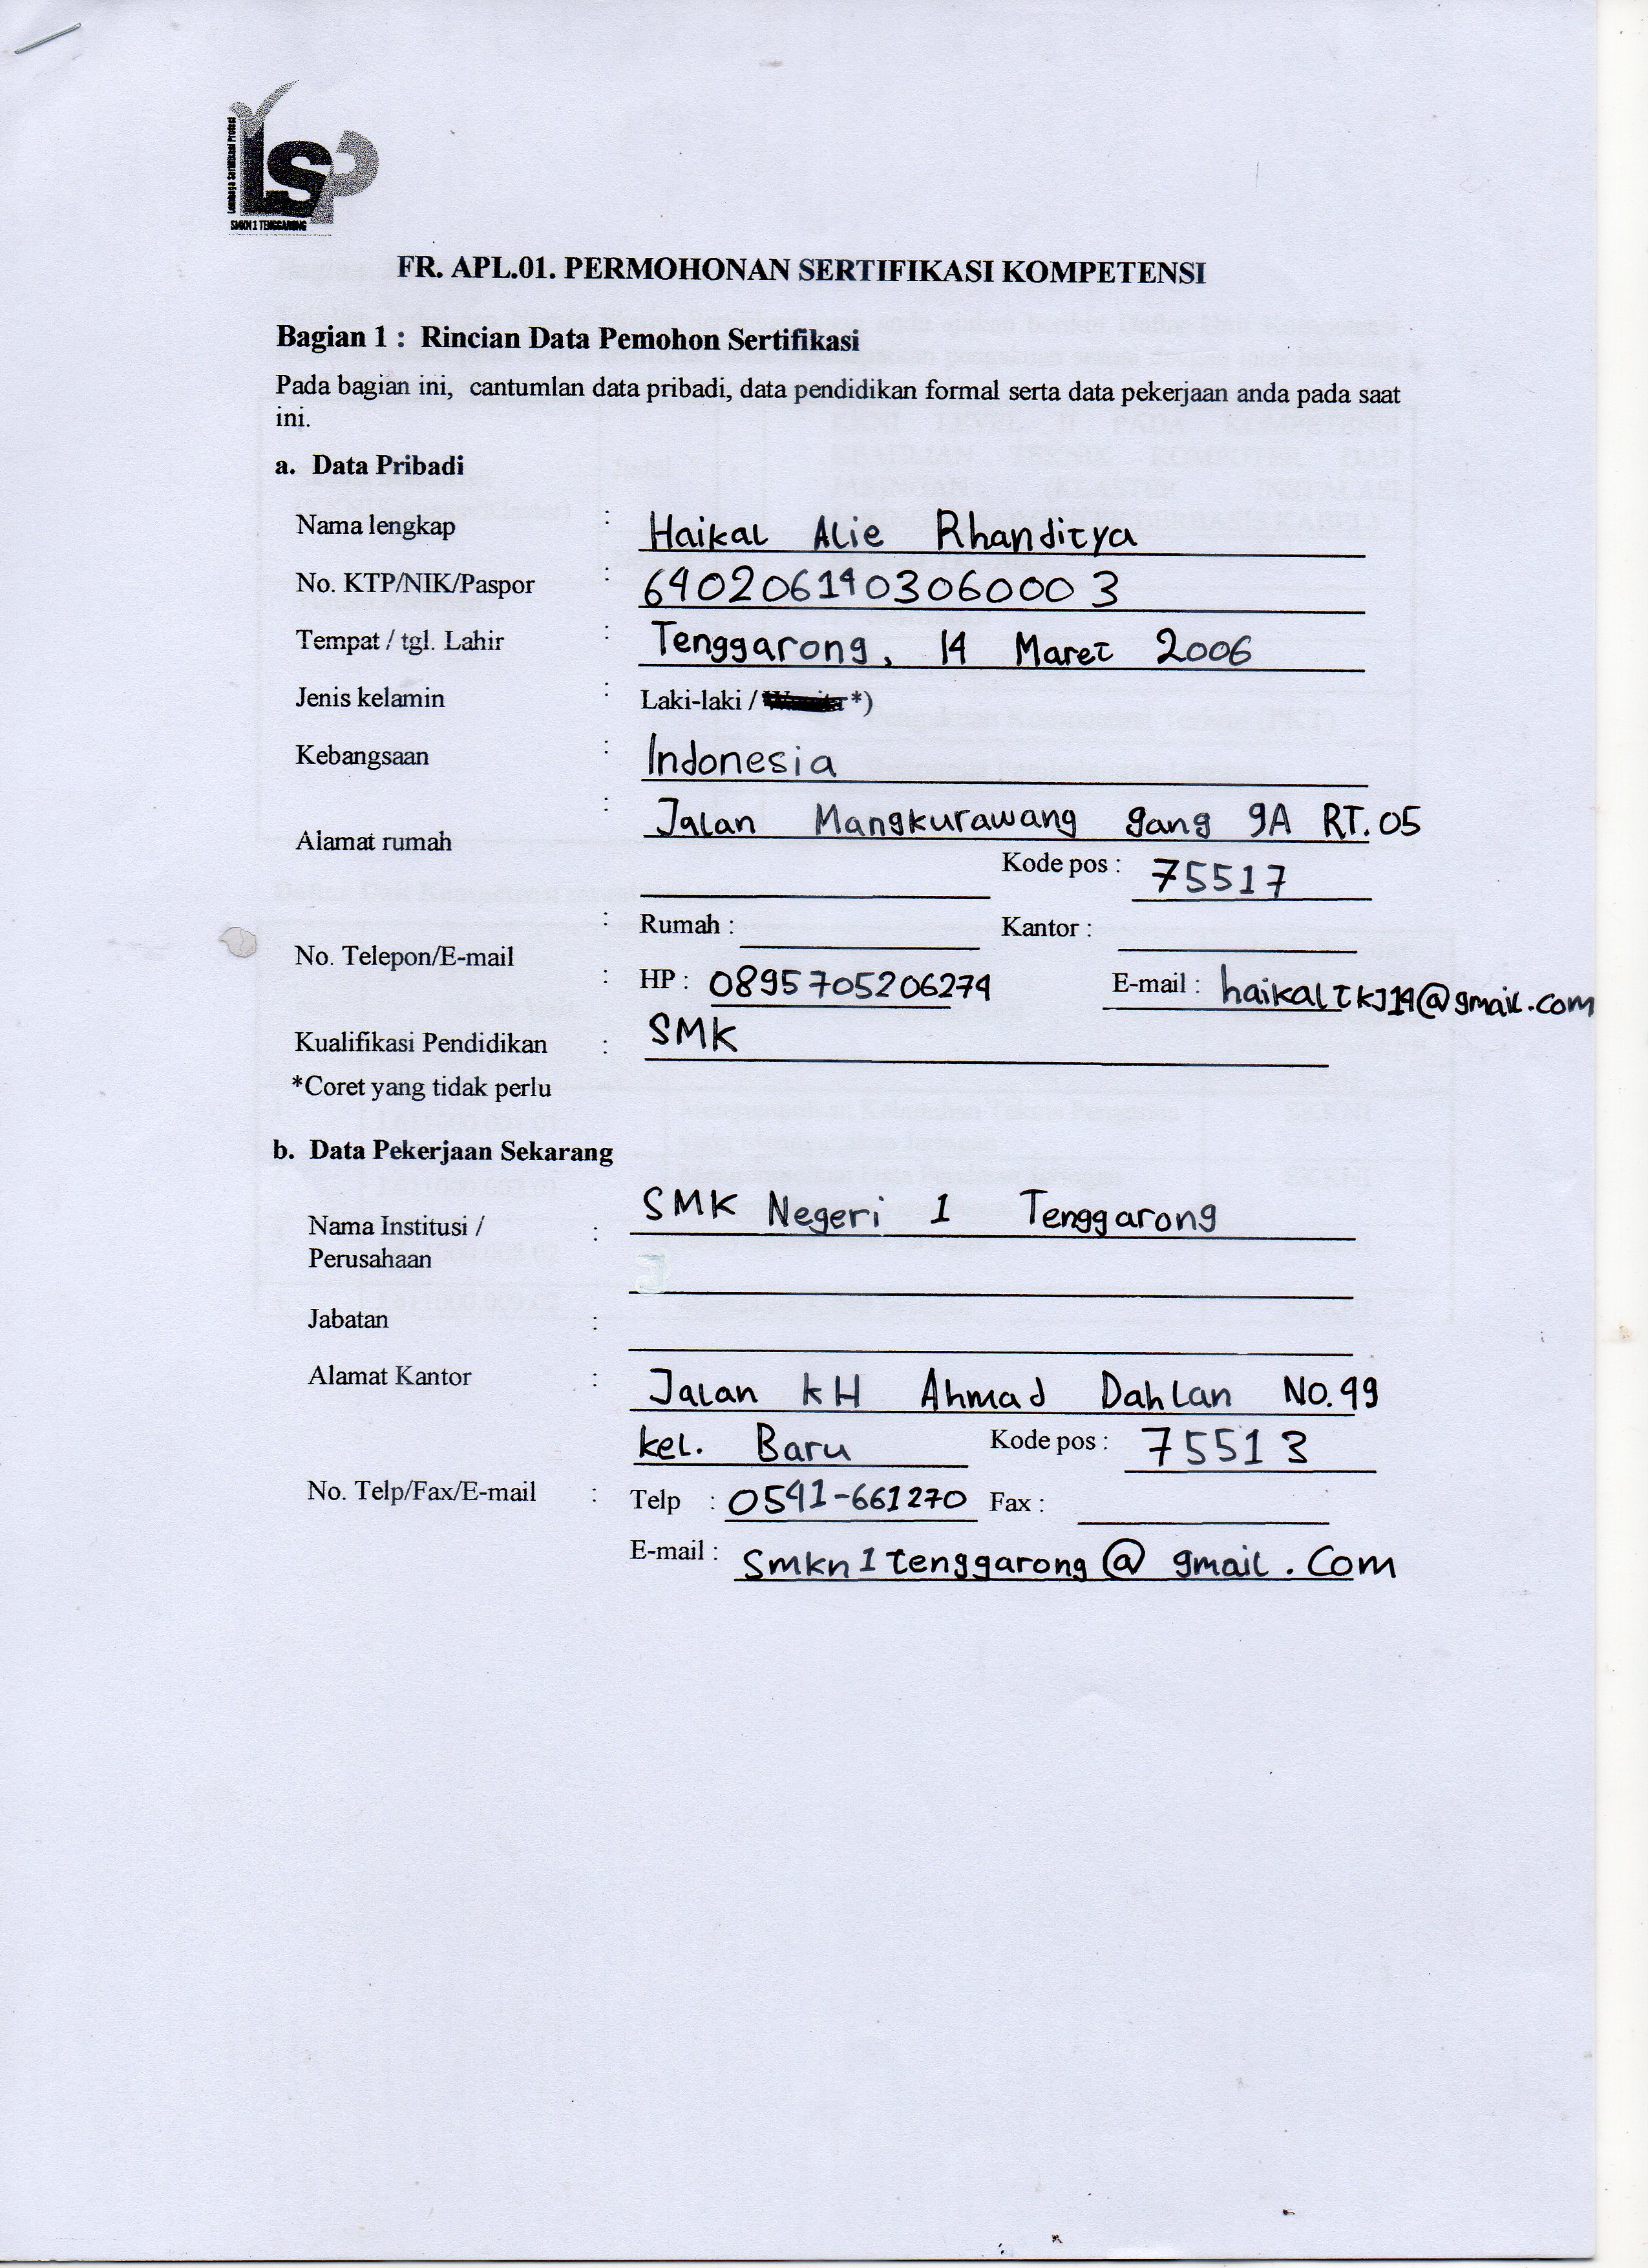 Lembaga Sertifikasi Profesi
LSP
SMKN 1 TENGGARONG
FR. APL.01. PERMOHONAN SERTIFIKASI KOMPETENSI
Bagian 1 : Rincian Data Pemohon Sertifikasi
Pada bagian ini, cantumlan data pribadi, data pendidikan formal serta data pekerjaan anda pada saat
ini.
a. Data Pribadi
Nama lengkap : Haikal Alie Rhanditya
No. KTP/NIK/Paspor : 6402061403060003
Tempat / tgl. Lahir : Tenggarong, 14 Maret 2006
Jenis kelamin : Laki-laki / *)
Kebangsaan : Indonesia
Alamat rumah : Jalan Mangkurawang gang 9A RT.05
Kode pos : 75517
No. Telepon/E-mail : Rumah : Kantor :
: HP : 0895705206274 E-mail : haikaltkj14@gmail.com
Kualifikasi Pendidikan : SMK
*Coret yang tidak perlu
b. Data Pekerjaan Sekarang
Nama Institusi / : SMK Negeri 1 Tenggarong
Perusahaan
Jabatan :
Alamat Kantor : Jalan KH Ahmad Dahlan No.49
kel. Baru Kode pos : 75513
No. Telp/Fax/E-mail : Telp : 0541-661270 Fax :
E-mail : Smkn1tenggarong@gmail.Com